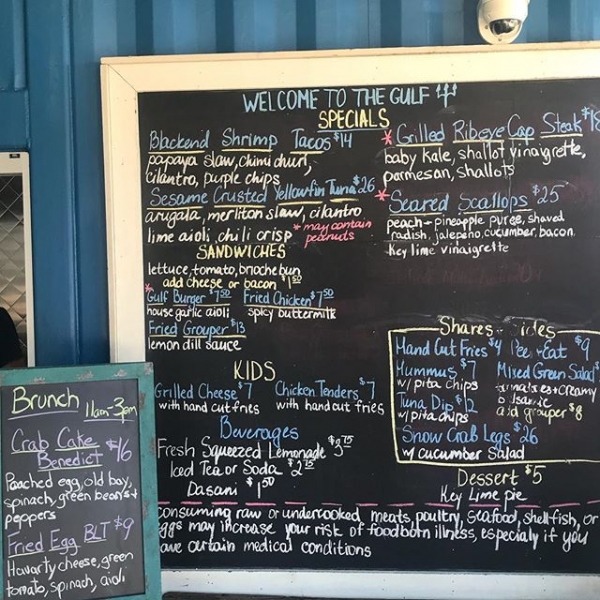 WELCOME TO THE GULF
SPECIALS
Blackend Shrimp Tacos $14
papaya slaw, chimi churi,
cilantro, purple chips
Sesame Crusted Yellowfin Tuna $26
arugala, merliton slaw, cilantro
lime aioli, chili crisp * may contain peanuts
SANDWICHES
lettuce, tomato, brioche bun
add cheese or bacon $1.50
* Gulf Burger $7.50 Fried Chicken $7.50
house garlic aioli spicy buttermilk
Fried Grouper $13
lemon dill sauce
KIDS
Grilled Cheese $7 Chicken Tenders $7
with hand cut fries with hand cut fries
Beverages
Fresh Squeezed Lemonade $3.75
Iced Tea or Soda $2.75
Dasani $1.50
* Grilled Ribeye Cap Steak $18
baby kale, shallot vinaigrette,
parmesan, shallots
* Seared Scallops $25
peach-pineapple puree, shaved
radish, jalepeno, cucumber, bacon
Key lime vinaigrette
Shares - Sides
Hand Cut Fries $4 Pee + Eat $9
Hummus $7 Mixed Green Salad
w/ pita chips + creamy
Tuna Dip $12 balsamic
w/ pita chips add grouper $8
Snow Crab Legs $26
w/ cucumber salad
Dessert $5
Key Lime pie
consuming raw or undercooked meats, poultry, seafood, shellfish, or
eggs may increase your risk of foodborn illness, especialy if you
have certain medical conditions
Brunch 11am-3pm
Crab Cake
Benedict $16
Poached egg, old bay,
spinach, green beans +
peppers
Fried Egg BLT $9
Havarty cheese, green
tomato, spinach, aioli